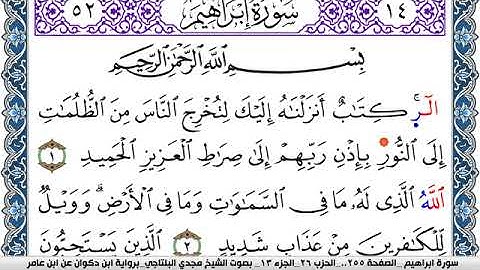 ١٤ سُورَةُ إِبْرَاهِيمَ ٥٢
بِسْمِ اللَّهِ الرَّحْمَٰنِ الرَّحِيمِ
الٓرۚ كِتَٰبٌ أَنزَلْنَٰهُ إِلَيْكَ لِتُخْرِجَ النَّاسَ مِنَ الظُّلُمَٰتِ
إِلَى النُّورِ بِإِذْنِ رَبِّهِمْ إِلَىٰ صِرَٰطِ الْعَزِيزِ الْحَمِيدِ ١
اللَّهُ الَّذِي لَهُۥ مَا فِي السَّمَٰوَٰتِ وَمَا فِي الْأَرْضِۗ وَوَيْلٌ
لِّلْكَٰفِرِينَ مِنْ عَذَابٍ شَدِيدٍ ٢ الَّذِينَ يَسْتَحِبُّونَ
سورة ابراهيم _الصفحة ٢٥٥.._ الحزب ٢٦_الجزء ١٣_ بصوت الشيخ مجدي البلتاجي_برواية ابن دكوان عن ابن عامر